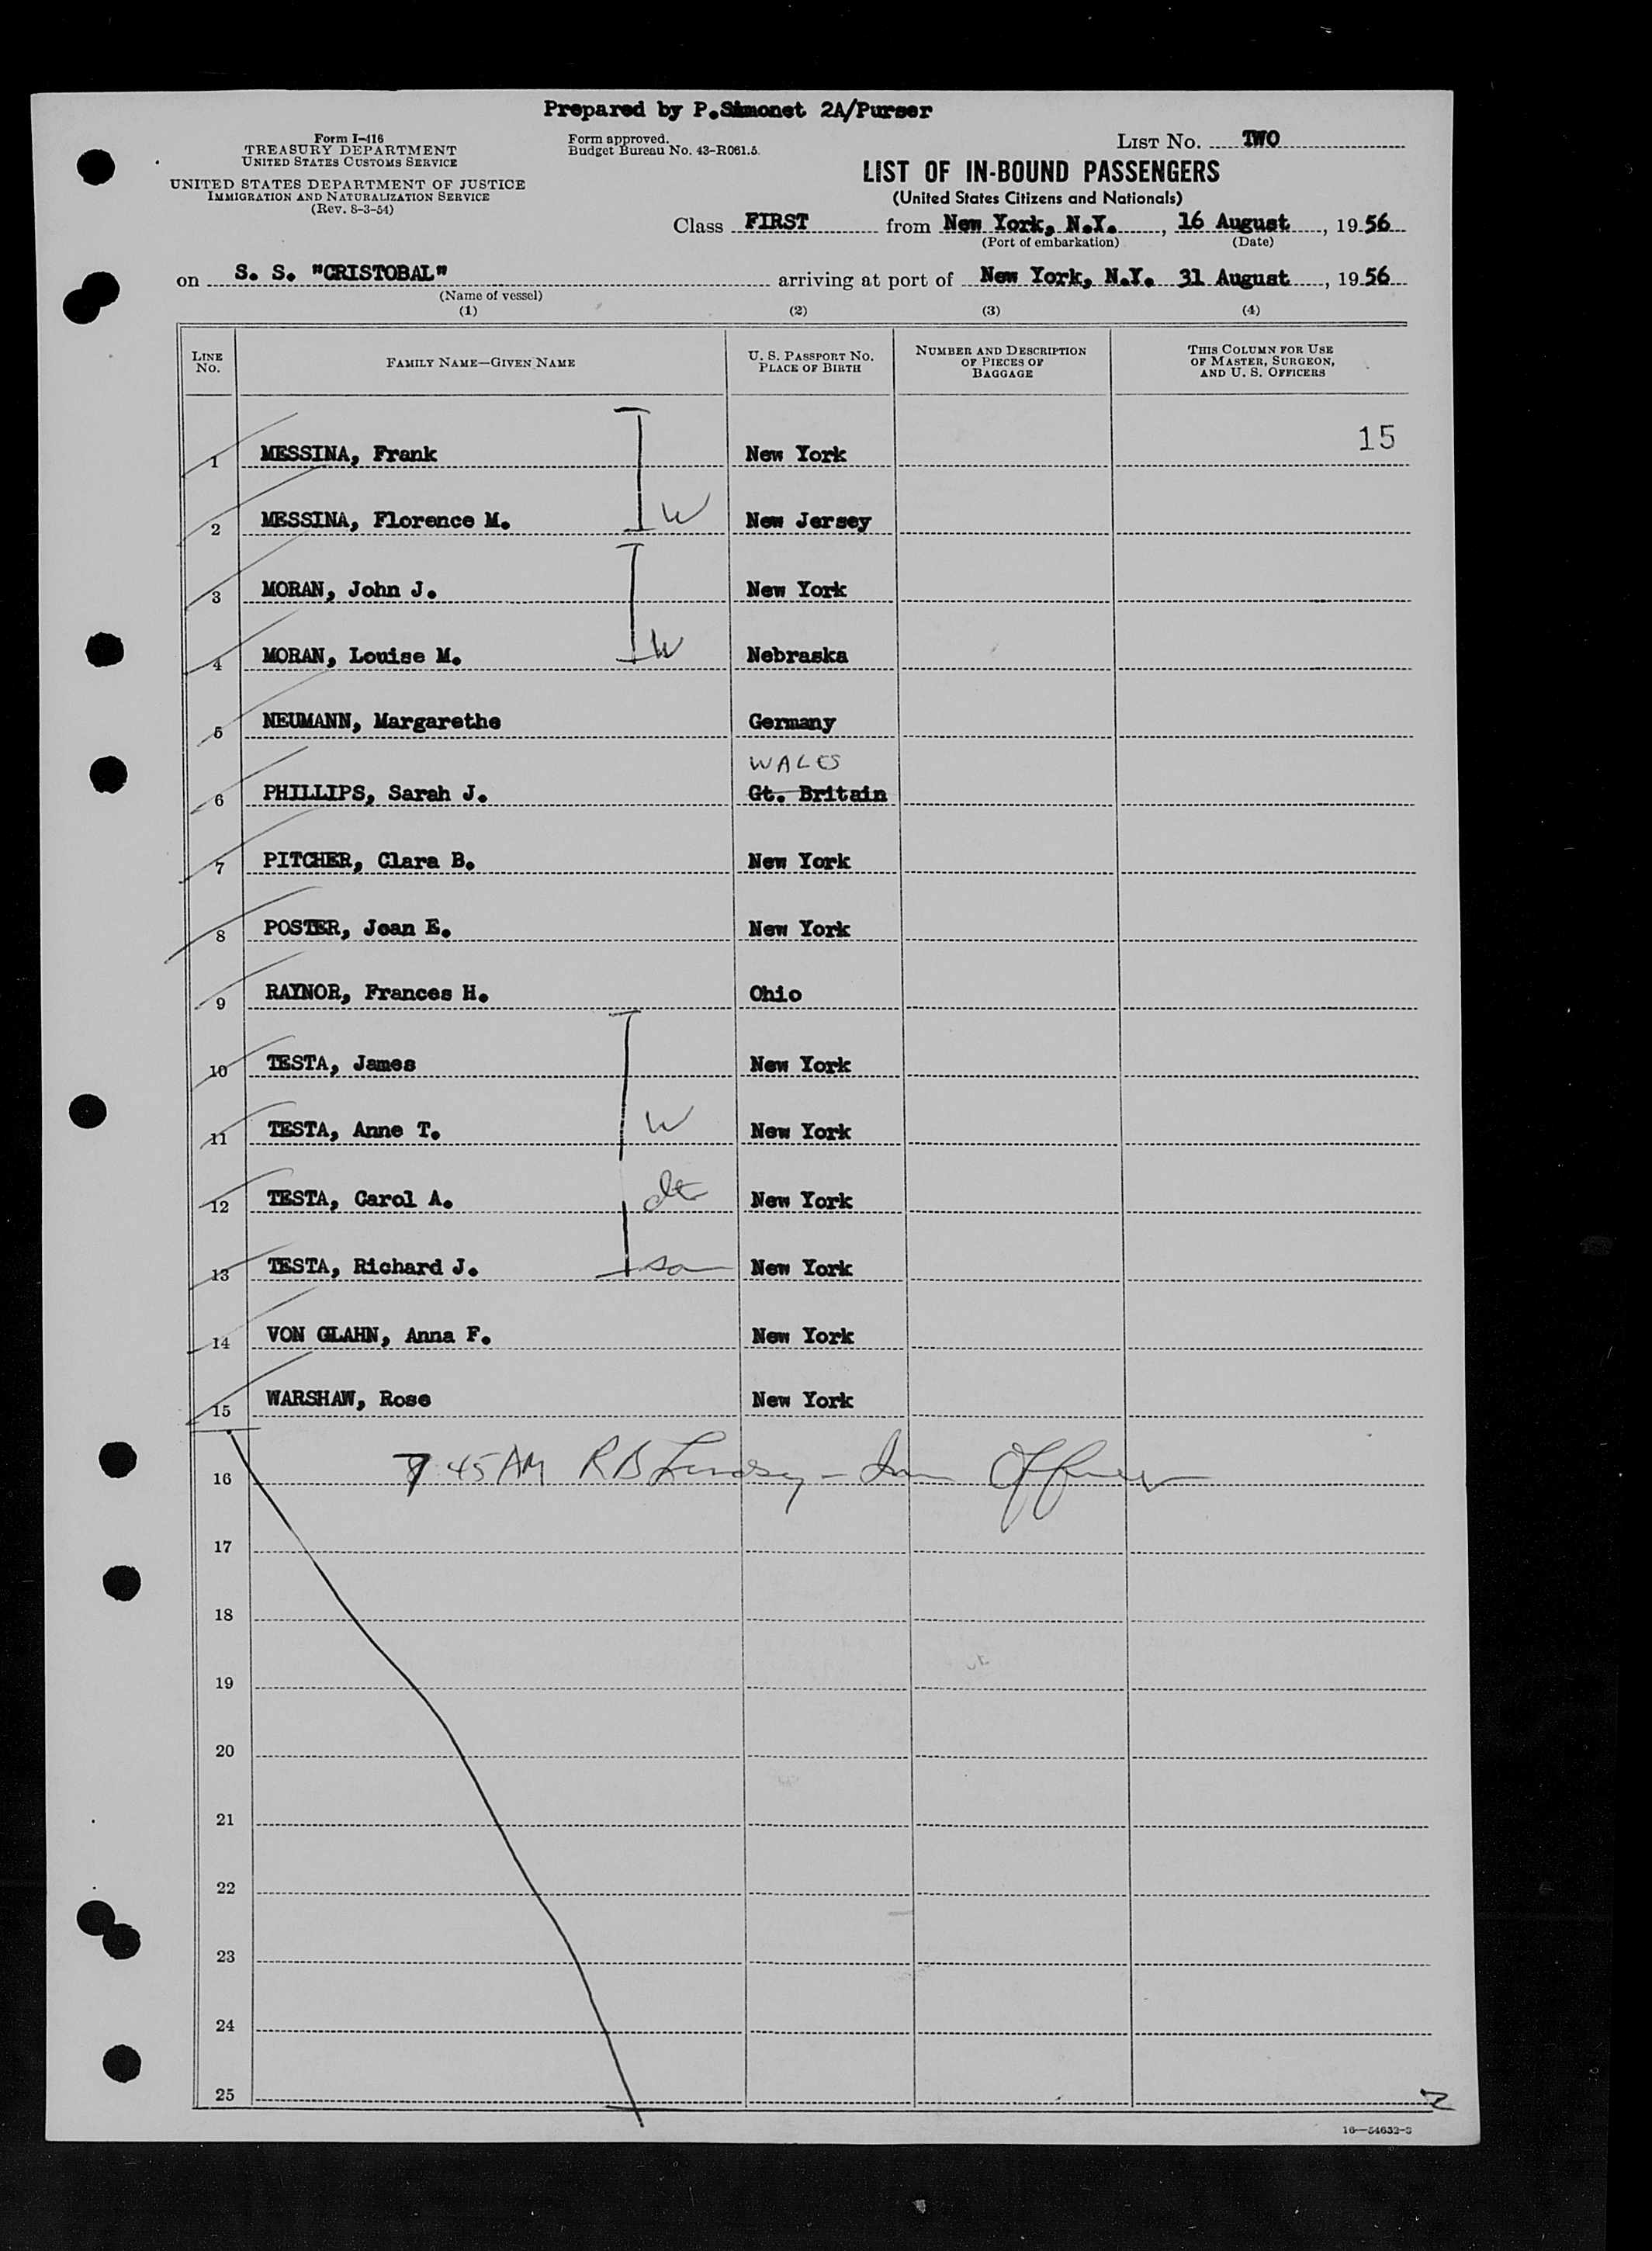 Prepared by P.Simonet 2A/Purser
Form I-416
TREASURY DEPARTMENT
UNITED STATES CUSTOMS SERVICE
UNITED STATES DEPARTMENT OF JUSTICE
IMMIGRATION AND NATURALIZATION SERVICE
(Rev. 8-3-54)
Form approved.
Budget Bureau No. 43-R061.5.
LIST No. TWO
LIST OF IN-BOUND PASSENGERS
(United States Citizens and Nationals)
Class FIRST from New York, N.Y., 16 August, 1956
(Port of embarkation) (Date)
on S. S. "CRISTOBAL" arriving at port of New York, N.Y. 31 August, 1956
(Name of vessel)
(1) (2) (3) (4)
LINE No. FAMILY NAME—GIVEN NAME U. S. PASSPORT No. PLACE OF BIRTH NUMBER AND DESCRIPTION OF PIECES OF BAGGAGE THIS COLUMN FOR USE OF MASTER, SURGEON, AND U. S. OFFICERS
15
1 MESSINA, Frank New York
2 MESSINA, Florence M. W New Jersey
3 MORAN, John J. New York
4 MORAN, Louise M. W Nebraska
5 NEUMANN, Margarethe Germany
WALES
6 PHILLIPS, Sarah J. Gt. Britain
7 PITCHER, Clara B. New York
8 POSTER, Jean E. New York
9 RAYNOR, Frances H. Ohio
10 TESTA, James New York
11 TESTA, Anne T. W New York
12 TESTA, Carol A. New York
13 TESTA, Richard J. son New York
14 VON GLAHN, Anna F. New York
15 WARSHAW, Rose New York
16 7 45 AM R B Officer
17
18
19
20
21
22
23
24
25
2
16—54632-3